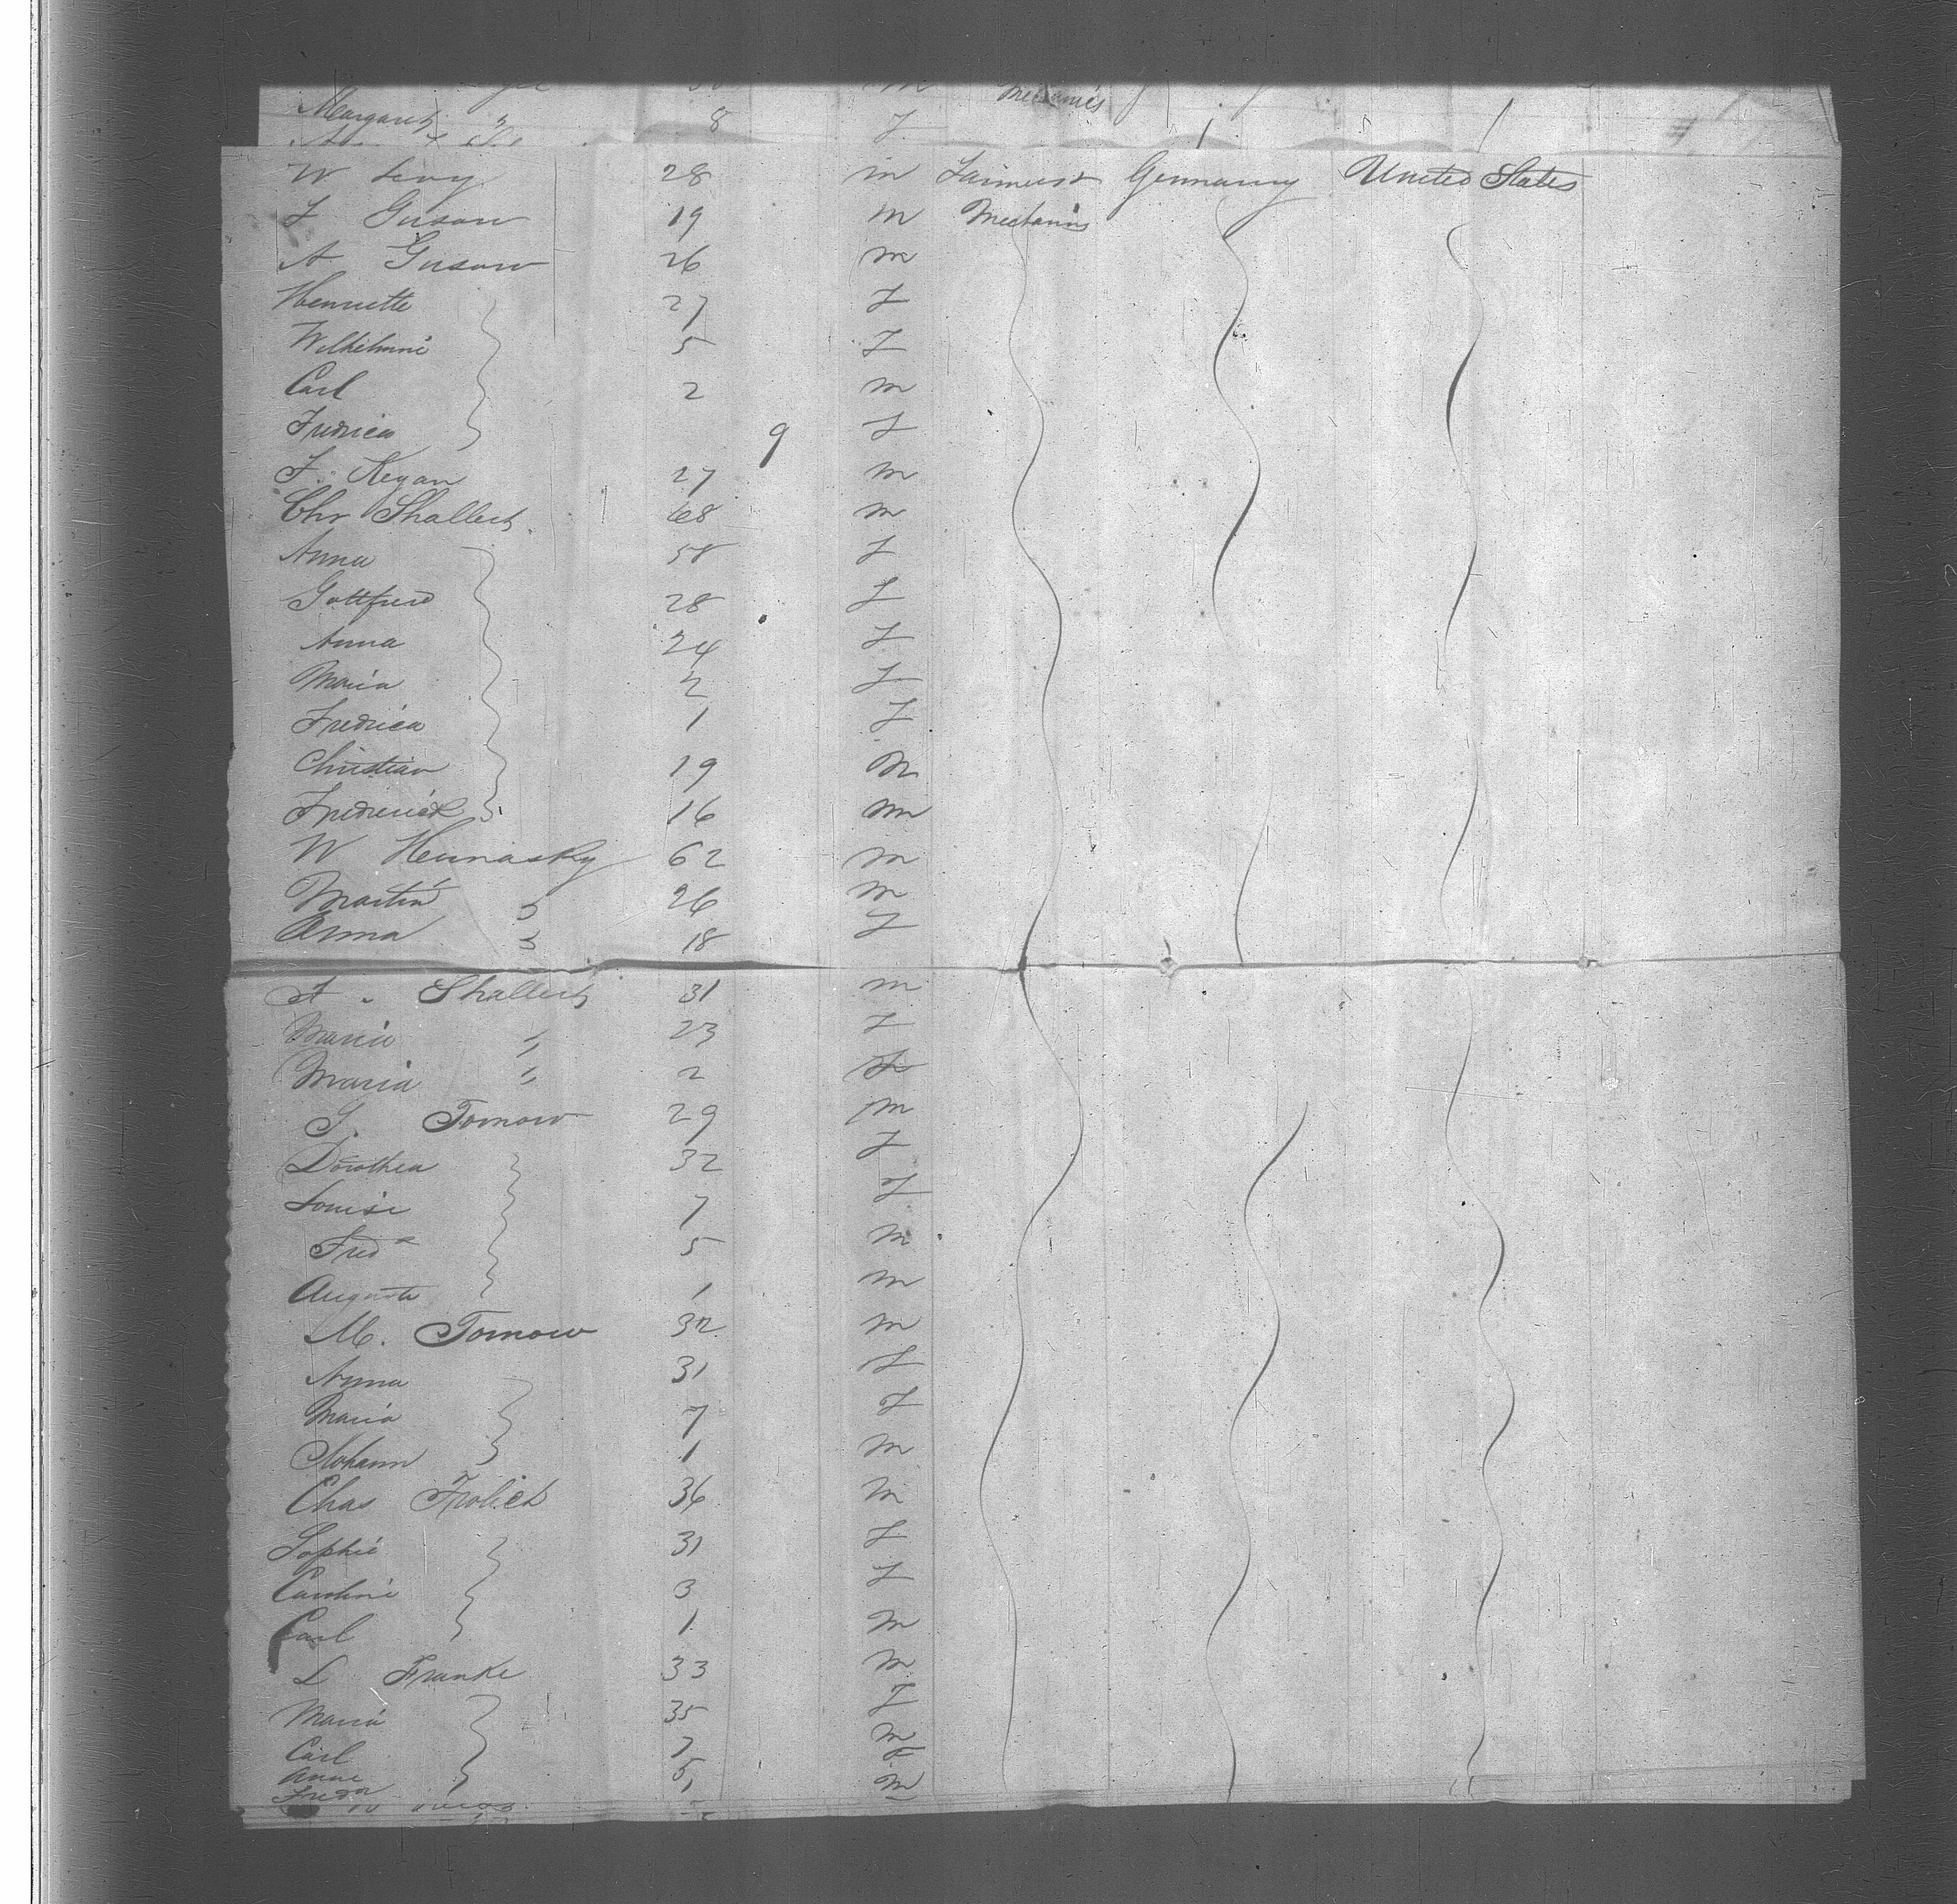 Mechanics
Margaret " 8 F
W Levy 28 m Farmers & Germany United States
F Gusow 19 m Mechanics
A Gusow 26 m
Henriette 27 F
Wilhelmine 5 F
Carl 2 m
Fredrica 9 F
F. Kegan 27 m
Chr Shallert 68 m
Anna 58 F
Gottfried 28 F
Anna 24 F
Maria 2 F
Fredrica 1 F
Christian 19 m
Frederick 16 m
W Hennasky 62 m
Martin " 26 m
Anna " 18 F
A. Shallert 31 m
Maria " 23 F
Maria " 2 F
J. Tornow 29 m
Dorothea 32 F
Louise 7 F
Fredk 5 m
Auguste 1 m
M. Tornow 32 m
Anna 31 F
Maria 7 F
Johann 1 m
Chas Frolich 36 m
Sophie 31 F
Caroline 3 F
Carl 1 m
L Franke 33 m
Maria 35 F
Carl 7 m
Anne 5 F
Fredk 1 m